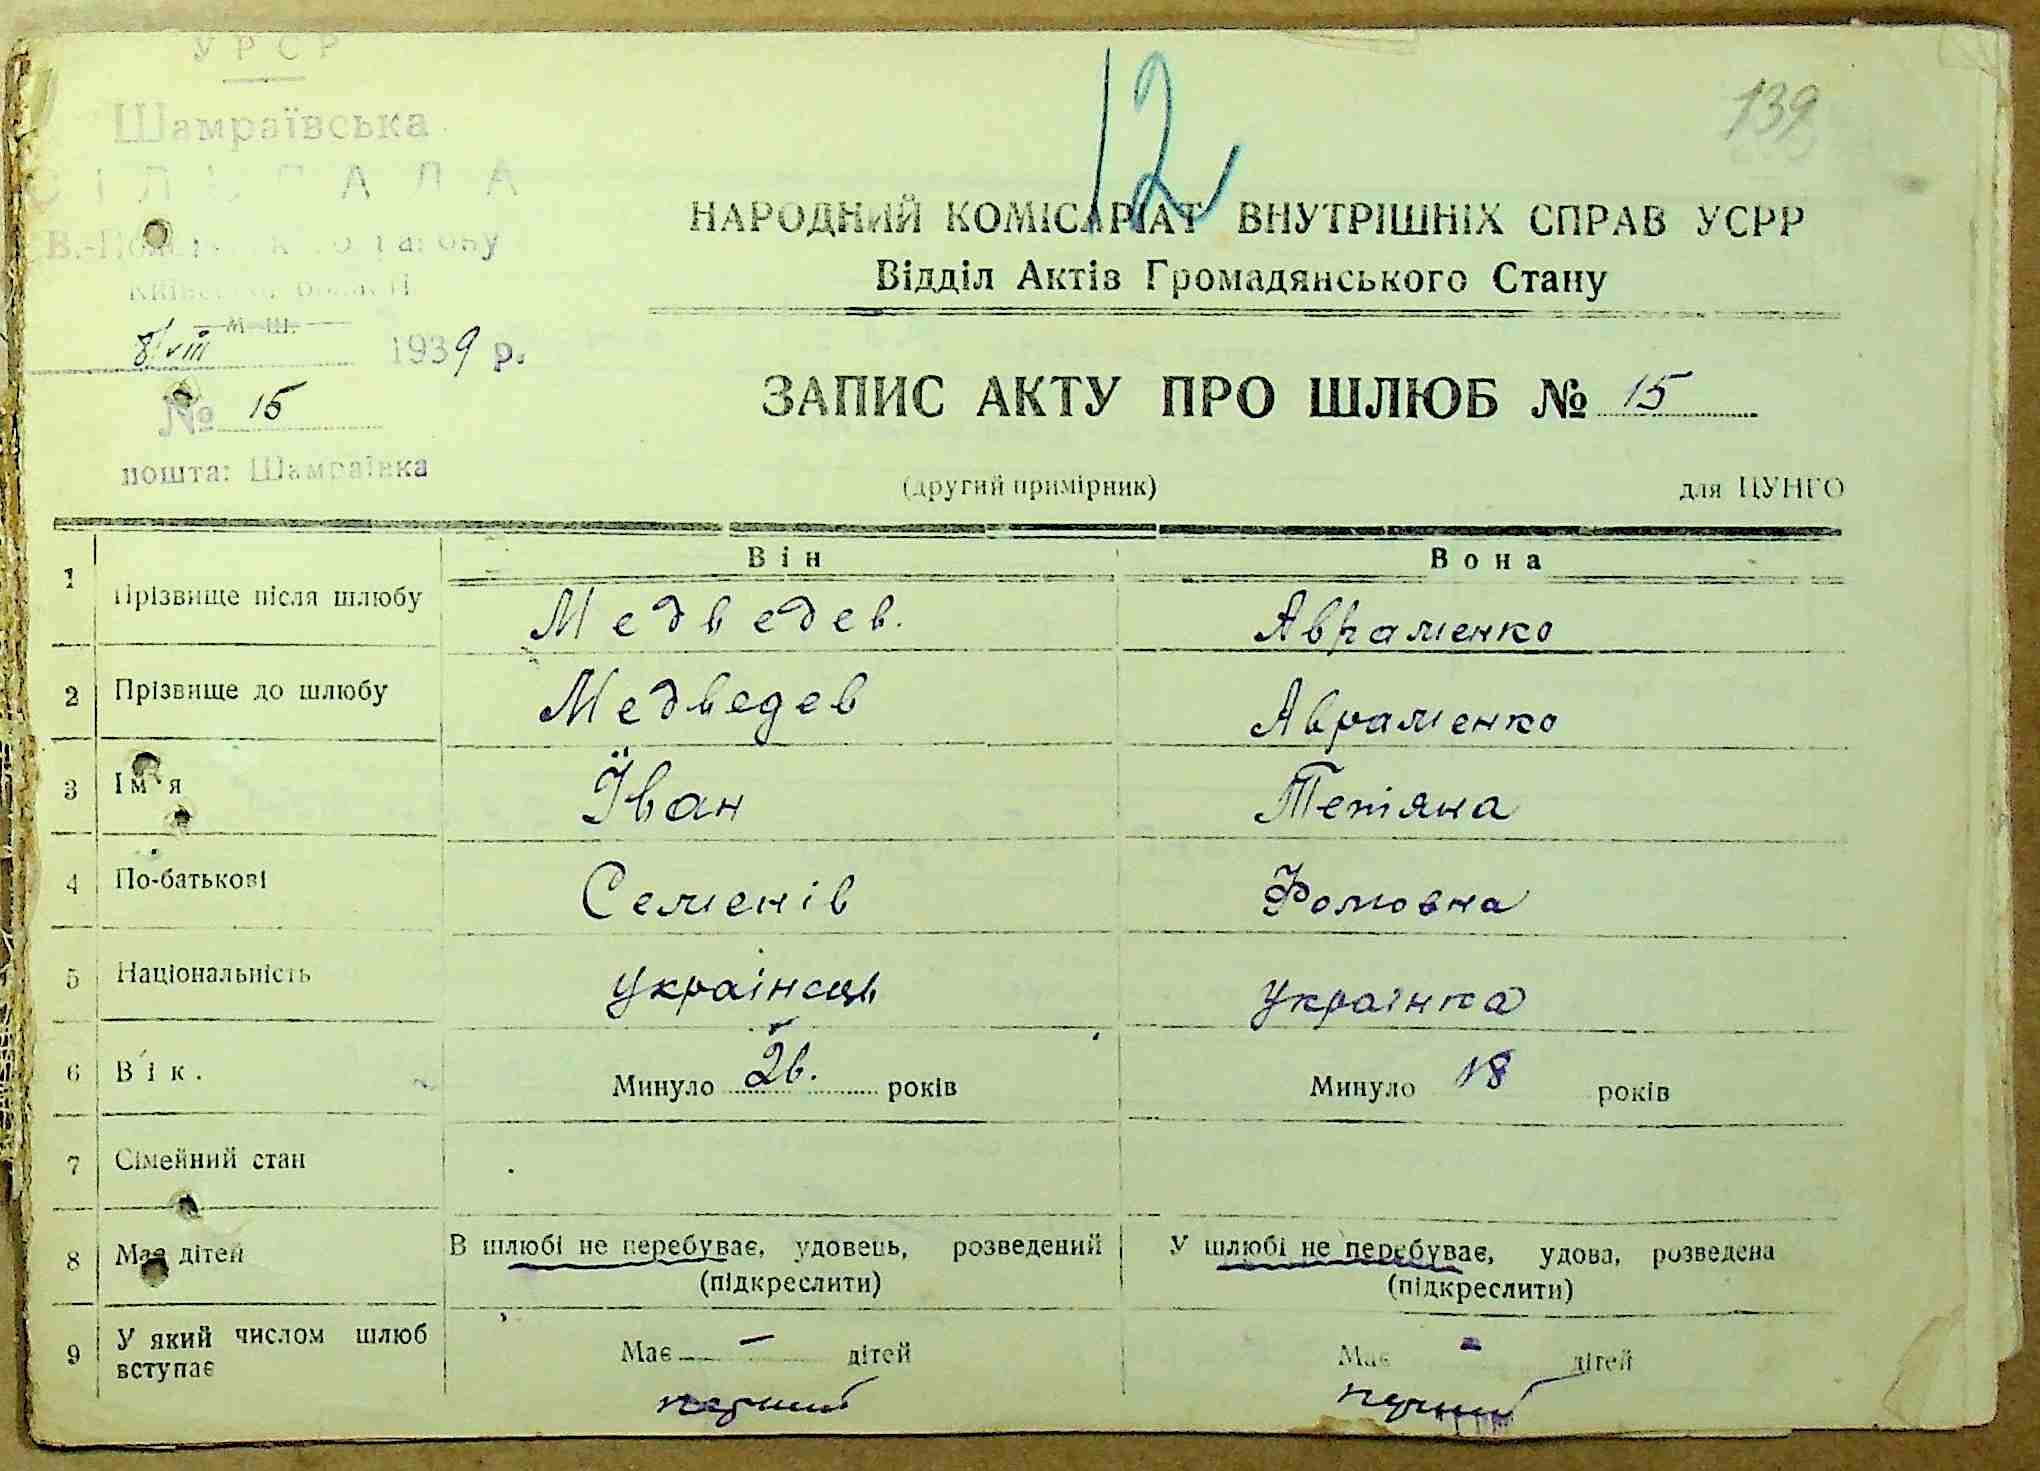 УРСР
Шамраївська
СІЛЬРАДА
Київської області
М. Ш.
8/VIII 1939 р.
№ 15
пошта: Шамраївка
12
139
НАРОДНИЙ КОМІСАРІАТ ВНУТРІШНІХ СПРАВ УСРР
Відділ Актів Громадянського Стану
ЗАПИС АКТУ ПРО ШЛЮБ № 15
(другий примірник) для ЦУНГО
Він Вона
1 Прізвище після шлюбу Медведев. Авраменко
2 Прізвище до шлюбу Медведев Авраменко
3 Ім'я Їван Тетяна
4 По-батькові Семенів Фомовна
5 Національність українець українка
6 Вік. Минуло 26. років Минуло 18 років
7 Сімейний стан
8 Має дітей В шлюбі не перебуває, удовець, розведений У шлюбі не перебуває, удова, розведена
(підкреслити) (підкреслити)
9 У який числом шлюб вступає Має — дітей Має - дітей
перший перший